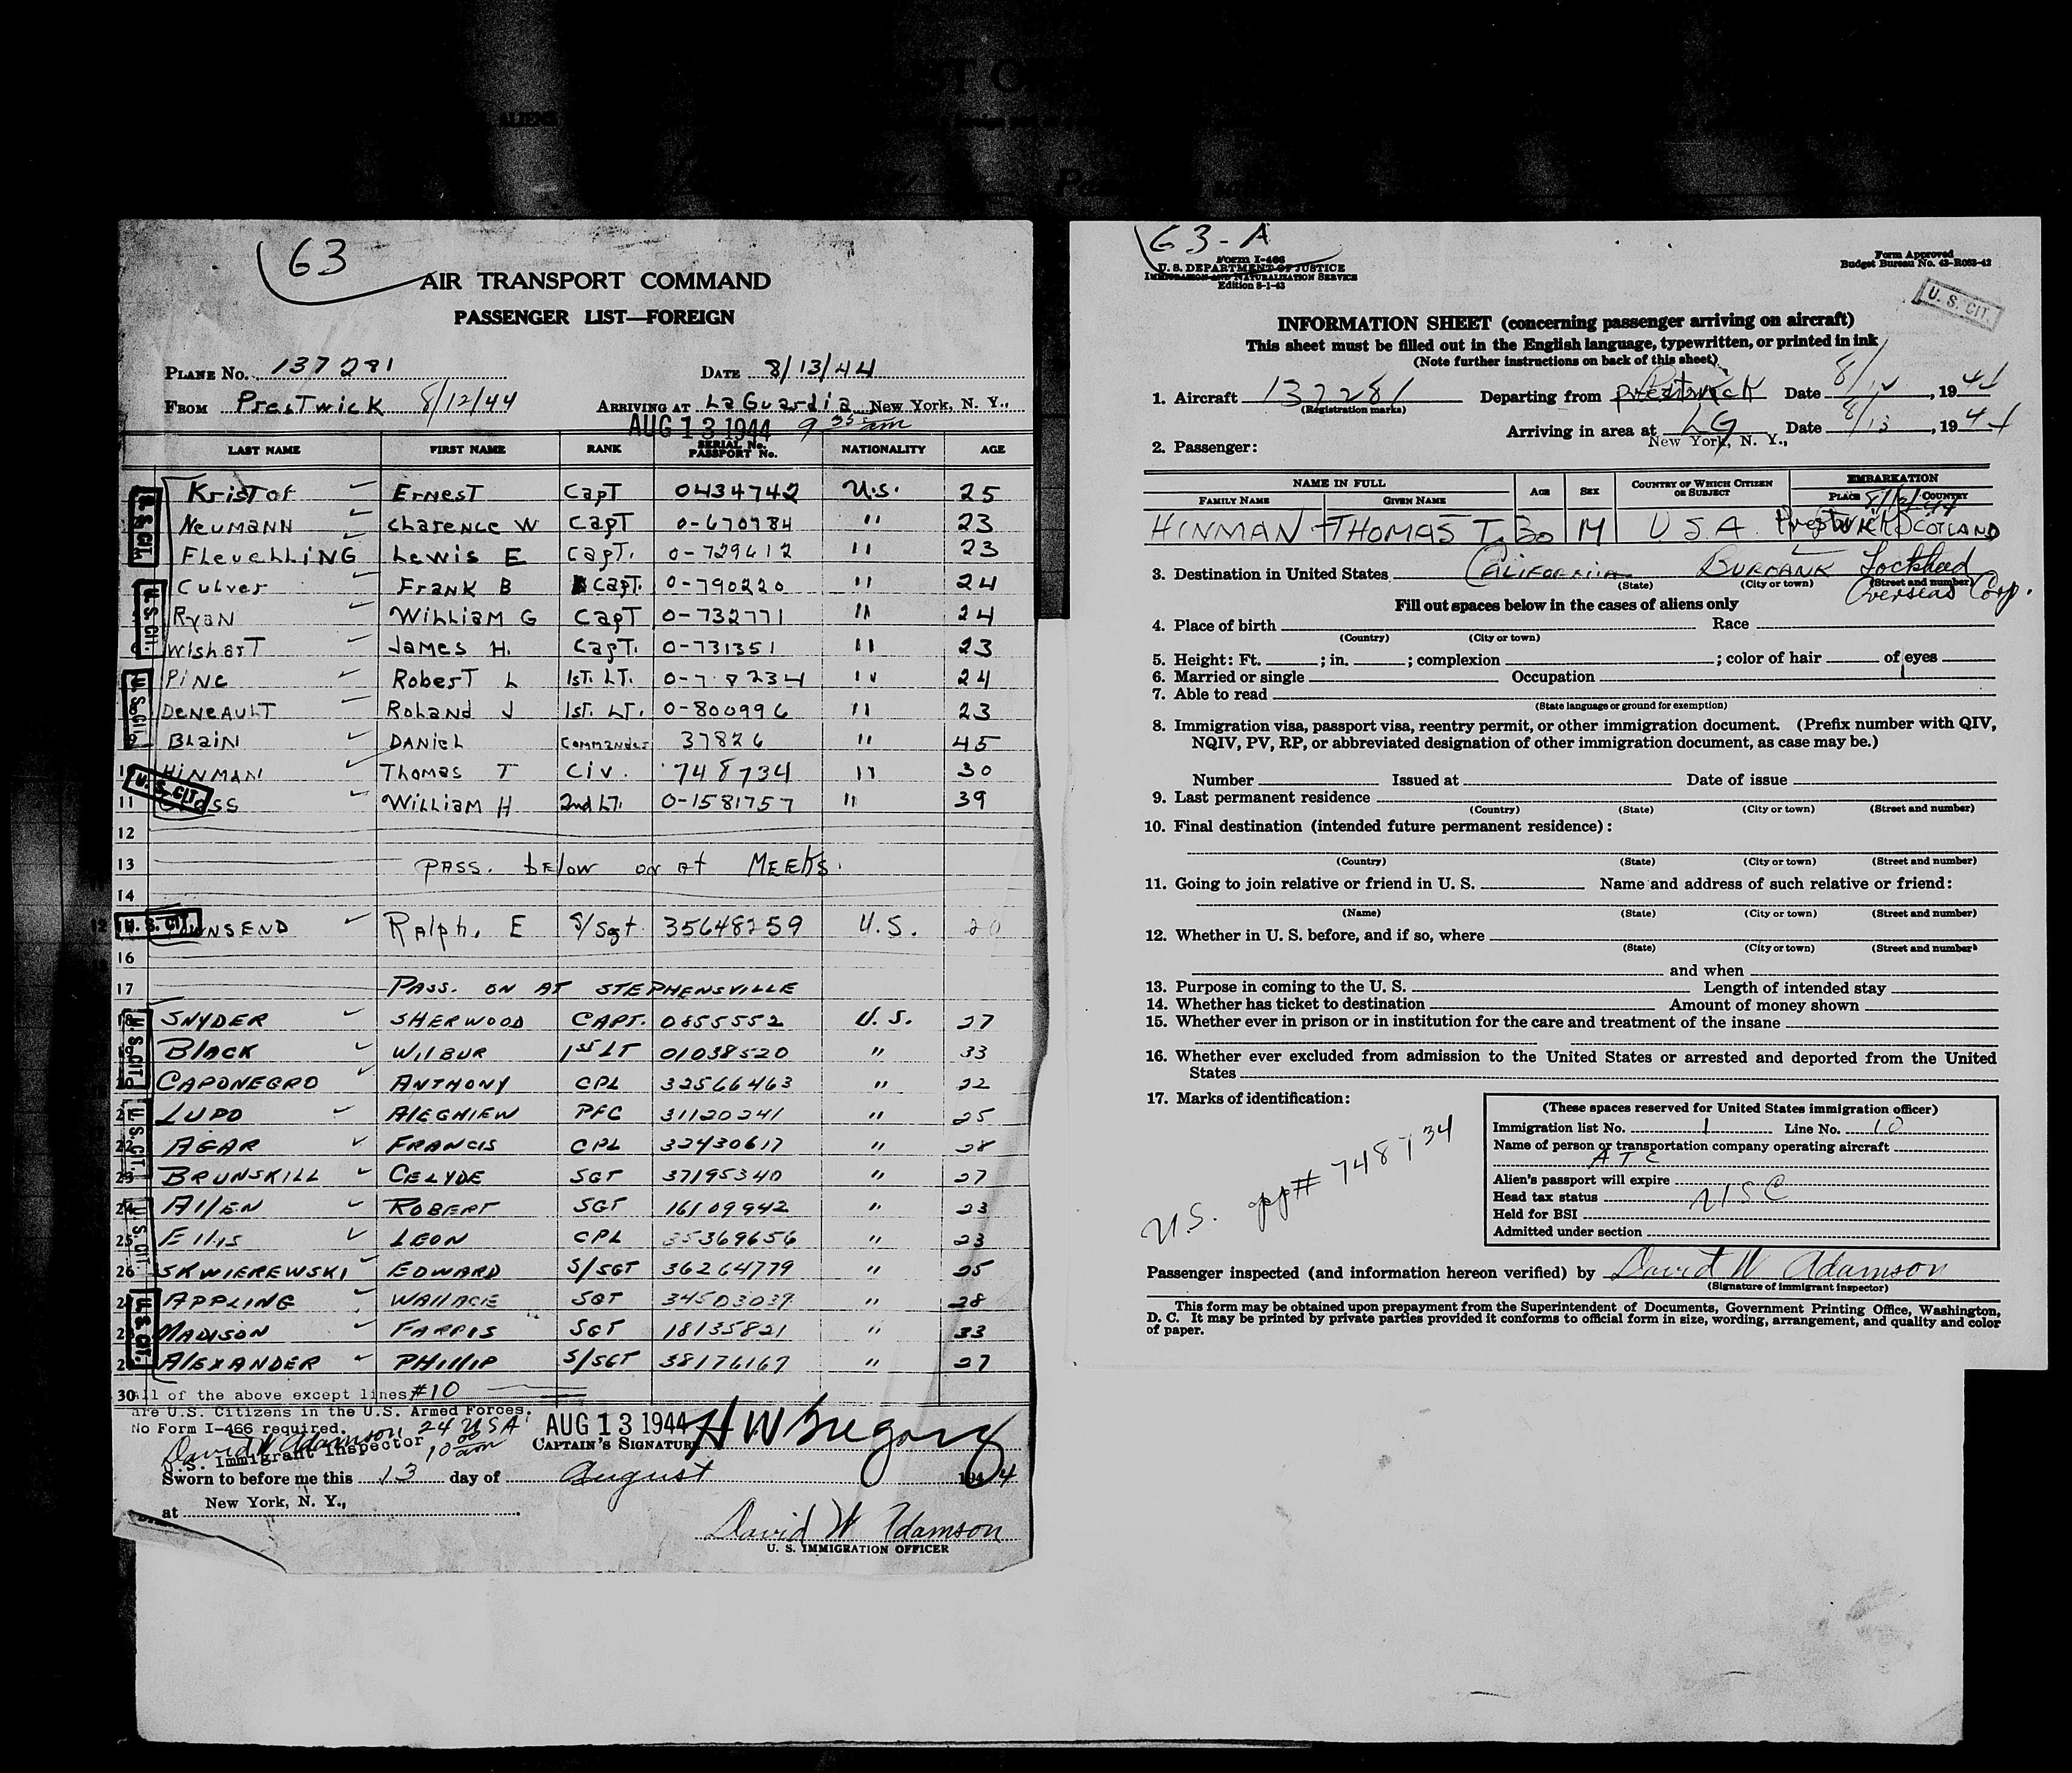 63
AIR TRANSPORT COMMAND
PASSENGER LIST—FOREIGN
PLANE No. 137281 DATE 8/13/44
FROM PresTwick 8/12/44 ARRIVING AT LaGuardia New York, N. Y.,
AUG 13 1944 9 35 am
LAST NAME FIRST NAME RANK SERIAL No. PASSPORT No. NATIONALITY AGE
KrisTof ErnesT CapT 0434742 U.S. 25
Neumann Clarence W CapT 0-670984 " 23
FleuchLLiNG Lewis E CapT. 0-729612 " 23
Culver Frank B CapT. 0-790220 " 24
Ryan William G CapT 0-732771 " 24
WisharT James H. CapT. 0-731351 " 23
PiNC RoberT L 1sT. LT. 24
DeNeAuLT Roland J 1sT. LT. 0-800996 " 23
9 BlaiN DANiel Commander 37826 " 45
10 HiNMAN Thomas T Civ. 748734 " 30
11 William H 2nd LT. 0-1581757 " 39
12
13 PASS. below on at MEEKS.
14
12 Ralph, E S/Sgt 35648259 U.S. 20
16
17 PASS. ON AT STEPHENSVILLE
18 SNYDER SHERWOOD CAPT. 0855552 U.S. 27
19 BlACK WILBUR 1st LT 01038520 " 33
20 CAPONEGRO ANTHONY CPL 32566463 " 22
21 LUPO AlEGHIEW PFC 31120241 " 25
22 AGAR FRANCIS CPL 32430617 " 28
23 BRUNSKILL CELYDE SGT 37195340 " 27
24 AllEN ROBERT SGT 16109942 " 23
25 EllIS LEON CPL 35369656 " 23
26 SKWIEREWSKI EDWARD S/SGT 36264779 " 25
27 APPLING WAllACE SGT 34503039 " 28
28 MADISON FARRIS SGT 18135821 " 33
29 AlEXANDER PHIllIP S/SGT 38176167 " 27
30 All of the above except lines #10
are U.S. Citizens in the U.S. Armed Forces.
No Form I-466 required. 24 USA
David W Adamson 10 00 am
U.S. Immigrant Inspector
AUG 13 1944 H W Gregory
CAPTAIN'S SIGNATURE
Sworn to before me this 13 day of August 1944
at New York, N. Y.,
David W Adamson
U. S. IMMIGRATION OFFICER
U. S. CIT.
U. S. CIT.
U. S. CIT.
U. S. CIT.
U. S. CIT.
U. S. CIT.
U. S. CIT.
U. S. CIT.
U. S. CIT.
63-A
Form I-466
U. S. DEPARTMENT OF JUSTICE
IMMIGRATION AND NATURALIZATION SERVICE
Edition 8-1-43
Form Approved
Budget Bureau No. 43-R063-42
U. S. CIT.
INFORMATION SHEET (concerning passenger arriving on aircraft)
This sheet must be filled out in the English language, typewritten, or printed in ink
(Note further instructions on back of this sheet)
1. Aircraft 137281 Departing from Prestwick Date 8/12, 1944
(Registration marks)
Arriving in area at LG Date 8/13, 1944
New York, N. Y.,
2. Passenger:
NAME IN FULL AGE SEX COUNTRY OF WHICH CITIZEN OR SUBJECT EMBARKATION
FAMILY NAME GIVEN NAME PLACE COUNTRY
8/12/44
HINMAN THOMAS T. 30 M USA Prestwick SCOTLAND
3. Destination in United States CALIFORNIA BURBANK Lockheed
(State) (City or town) (Street and number)
Overseas Corp.
Fill out spaces below in the cases of aliens only
4. Place of birth Race
(Country) (City or town)
5. Height: Ft. ; in. ; complexion ; color of hair of eyes
6. Married or single Occupation
7. Able to read
(State language or ground for exemption)
8. Immigration visa, passport visa, reentry permit, or other immigration document. (Prefix number with QIV,
NQIV, PV, RP, or abbreviated designation of other immigration document, as case may be.)
Number Issued at Date of issue
9. Last permanent residence
(Country) (State) (City or town) (Street and number)
10. Final destination (intended future permanent residence):
(Country) (State) (City or town) (Street and number)
11. Going to join relative or friend in U. S. Name and address of such relative or friend:
(Name) (State) (City or town) (Street and number)
12. Whether in U. S. before, and if so, where
(State) (City or town) (Street and number)
and when
13. Purpose in coming to the U. S. Length of intended stay
14. Whether has ticket to destination Amount of money shown
15. Whether ever in prison or in institution for the care and treatment of the insane
16. Whether ever excluded from admission to the United States or arrested and deported from the United
States
17. Marks of identification:
U.S. pp# 748734
(These spaces reserved for United States immigration officer)
Immigration list No. 1 Line No. 10
Name of person or transportation company operating aircraft
ATC
Alien's passport will expire
Head tax status USC
Held for BSI
Admitted under section
Passenger inspected (and information hereon verified) by David W Adamson
(Signature of immigrant inspector)
This form may be obtained upon prepayment from the Superintendent of Documents, Government Printing Office, Washington,
D. C. It may be printed by private parties provided it conforms to official form in size, wording, arrangement, and quality and color
of paper.